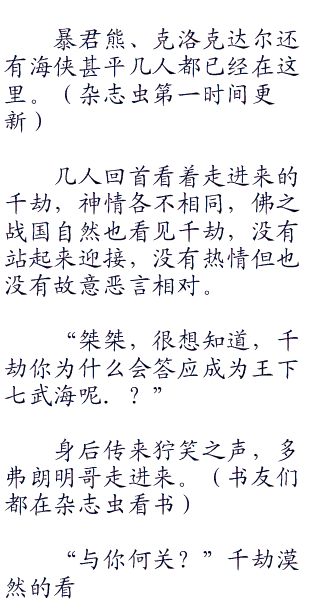 暴君熊、克洛克达尔还
有海侠甚平几人都已经在这
里。（杂志虫第一时间更
新）
几人回首看着走进来的
千劫，神情各不相同，佛之
战国自然也看见千劫，没有
站起来迎接，没有热情但也
没有故意恶言相对。
“桀桀，很想知道，千
劫你为什么会答应成为王下
七武海呢．？”
身后传来狞笑之声，多
弗朗明哥走进来。（书友们
都在杂志虫看书）
“与你何关？”千劫漠
然的看